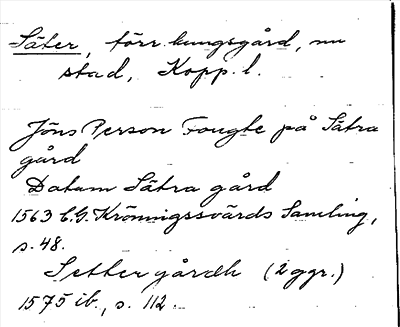 Säter, förr. kungsgård, nu
stad, Kopp. l.
Jöns Person Fougte på Sätra
gård
Datum Sätra gård
1563 C.G. Krönnigssvärds Samling,
s. 48.
Setter gårdh (2 ggr.)
1575 ib., s. 112.